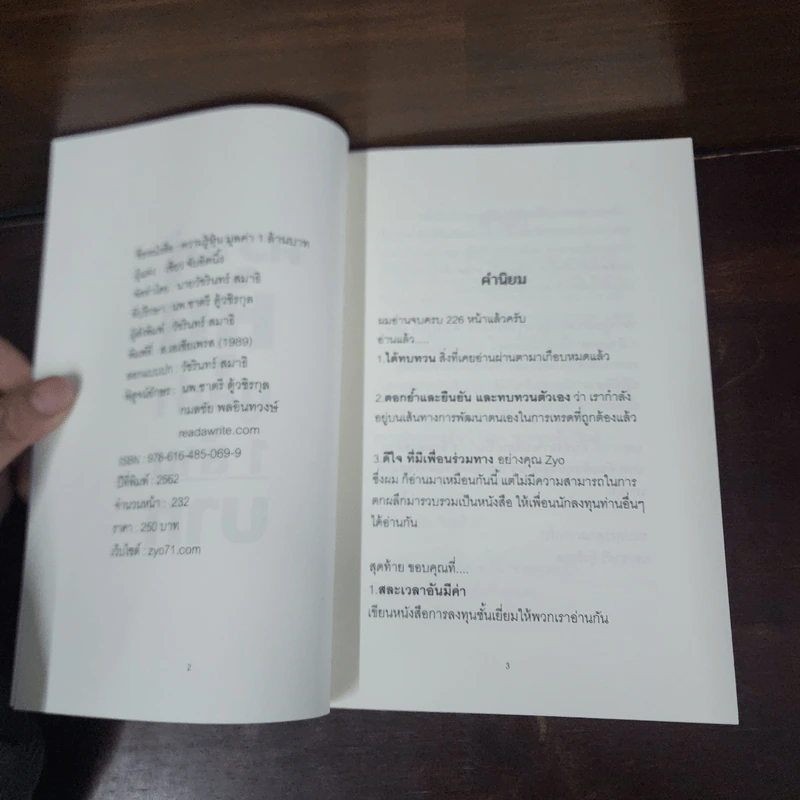 ชื่อหนังสือ : ความรู้หุ้น มูลค่า 1 ล้านบาท
ผู้แต่ง : เซียว จับอิดนึ้ง
จัดทำโดย : นายวัชรินทร์ สมาธิ
ที่ปรึกษา : นพ.ชาตรี ตู้วชิรกุล
ผู้จัดพิมพ์ : วัชรินทร์ สมาธิ
พิมพ์ที่ : ส.เอเซียเพรส (1989)
ออกแบบปก : วัชรินทร์ สมาธิ
พิสูจน์อักษร : นพ.ชาตรี ตู้วชิรกุล
กมลชัย พลอินทวงษ์
readawrite.com
ISBN : 978-616-485-069-9
ปีที่พิมพ์ : 2562
จำนวนหน้า : 232
ราคา : 250 บาท
เว็บไซต์ : zyo71.com
2
คำนิยม
ผมอ่านจบครบ 226 หน้าแล้วครับ
อ่านแล้ว....
1.ได้ทบทวน สิ่งที่เคยอ่านผ่านตามาเกือบหมดแล้ว
2.ตอกย้ำและยืนยัน และทบทวนตัวเอง ว่า เรากำลัง
อยู่บนเส้นทางการพัฒนาตนเองในการเทรดที่ถูกต้องแล้ว
3.ดีใจ ที่มีเพื่อนร่วมทาง อย่างคุณ Zyo
ซึ่งผม ก็อ่านมาเหมือนกันนี้ แต่ไม่มีความสามารถในการ
ตกผลึกมารวบรวมเป็นหนังสือ ให้เพื่อนนักลงทุนท่านอื่นๆ
ได้อ่านกัน
สุดท้าย ขอบคุณที่....
1.สละเวลาอันมีค่า
เขียนหนังสือการลงทุนชั้นเยี่ยมให้พวกเราอ่านกัน
3